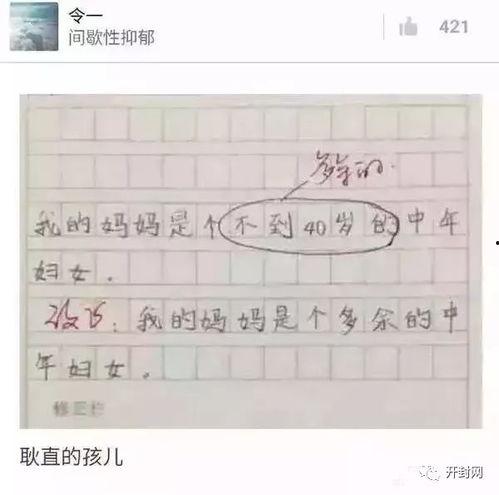 令一
间歇性抑郁
421
多余的.
我的妈妈是个不到40岁的中年
妇女.
改正:我的妈妈是个多余的中
年妇女。
修正栏
耿直的孩儿
开封网